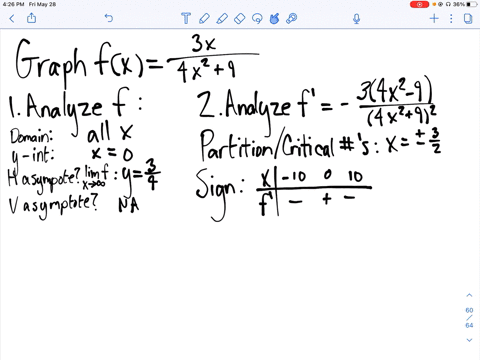 4:26 PM Fri May 28
36%
Graph f(x) = 3x / (4x² + 9)
1. Analyze f :
Domain: all x
y-int: x = 0
H asympote? lim x→∞ f : y = 3/4
V asymptote? NA
2. Analyze f' = - 3(4x²-9) / (4x²+9)²
Partition/Critical #'s : x = ± 3/2
Sign: x | -10 0 10
f' | - + -
60
/
64